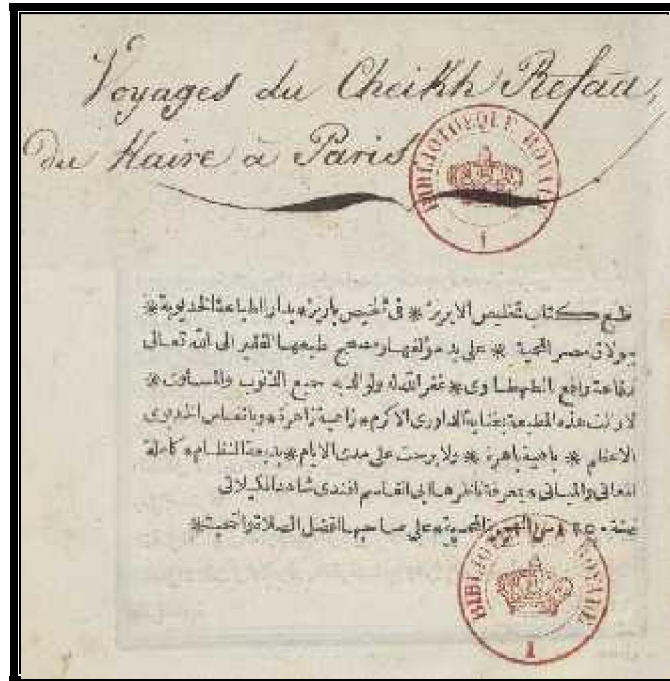 Voyages du Cheikh Refaa,
du Kaire à Paris
BIBLIOTHEQUE ROYALE
I
طبع كتاب تخليص الابريز * في تلخيص باريز * بدار الطباعة الخديوية *
ببولاق مصر المحمية * على يد مؤلفها ومصحح طبعها الفقير الى الله تعالى
رفاعة رافع الطهطاوى * غفر الله له ولوالديه جميع الذنوب والمساوى *
لازالت هذه المطبعة بعناية الداورى الاكرم * زاهية زاهرة * وبانفاس الخديوى
الاعظم * باهية باهرة * ولا برحت على مدى الايام * بديعة النظام * كاملة
المعانى والمبانى * بمعرفة ناظرها ابى القاسم افندى شاهد الكيلانى
سنة ١٢٥٠ من الهجرة المحمدية * على صاحبها افضل الصلاة والتحية *
BIBLIOTHEQUE ROYALE
I